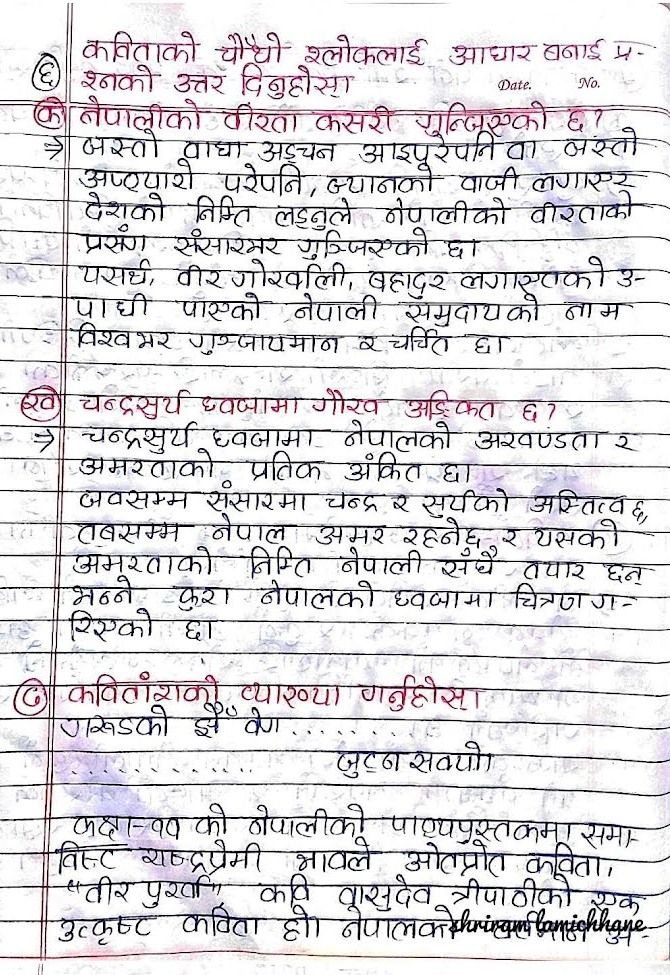 कविताको चौथो श्लोकलाई आधार बनाई प्र-
६ श्नको उत्तर दिनुहोस।
Date. No.
क नेपालीको वीरता कसरी गुन्जिएको छ?
⇒ जस्तो वाधा अड्चन आइपुरेपनि वा जस्तो
अप्ठ्यारो परेपनि, ज्यानको वाजी लगाएर
देशको निम्ति लड्नुले नेपालीको वीरताको
प्रसंग संसारभर गुञ्जिएको छ।
यसर्थ, वीर गोर्खाली, बहादुर लगाएतको उ-
पाधी पाएको नेपाली समुदायको नाम
विश्वभर गुञ्जायमान र चर्चित छ।
ख चन्द्रसुर्य ध्वजामा गौरव अङ्कित छ?
⇒ चन्द्रसुर्य ध्वजामा नेपालको अखण्डता र
अमरताको प्रतिक अंकित छ।
जवसम्म संसारमा चन्द्र र सुर्यको अस्तित्व छ,
तबसम्म नेपाल अमर रहनेछ र यसको
अमरताको निम्ति नेपाली सधैँ तयार छन्
भन्ने कुरा नेपालको ध्वजामा चित्रण ग-
रिएको छ।
८ कवितांशको व्याख्या गर्नुहोस।
गरूडको झैँ वेग ........
............ जुट्न सक्यो।
कक्षा-११ को नेपालीको पाठ्यपुस्तकमा समा-
विष्ट राष्ट्रप्रेमी भावले ओतप्रोत कविता,
"वीर पुर्खा", कवि वासुदेव त्रीपाठीको एक
उत्कृष्ट कविता हो। नेपालको
shriram lamichhane